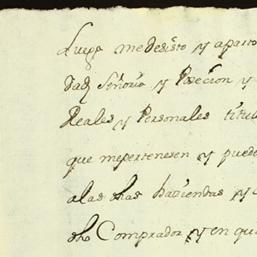 fuera me desisto y aparto
dad, Señorio y Posecion y
Reales y Personales titul
que me pertenesen y puede
a las dhas haziendas y
dho Comprador y en qu